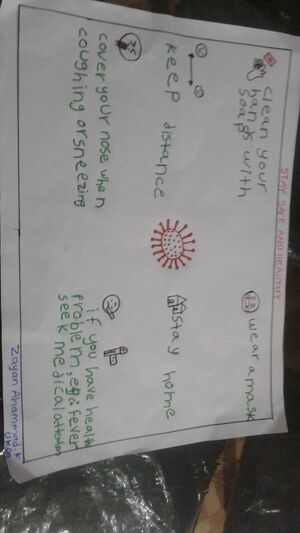 STAY SAFE AND HEALTHY
clean your
hands with
soaps
wear a mask
Keep distance
stay home
cover your nose when
coughing or sneezing
if you have health
problem, eg: fever
seek medical attention
Zayan Ahammad.K
UKG